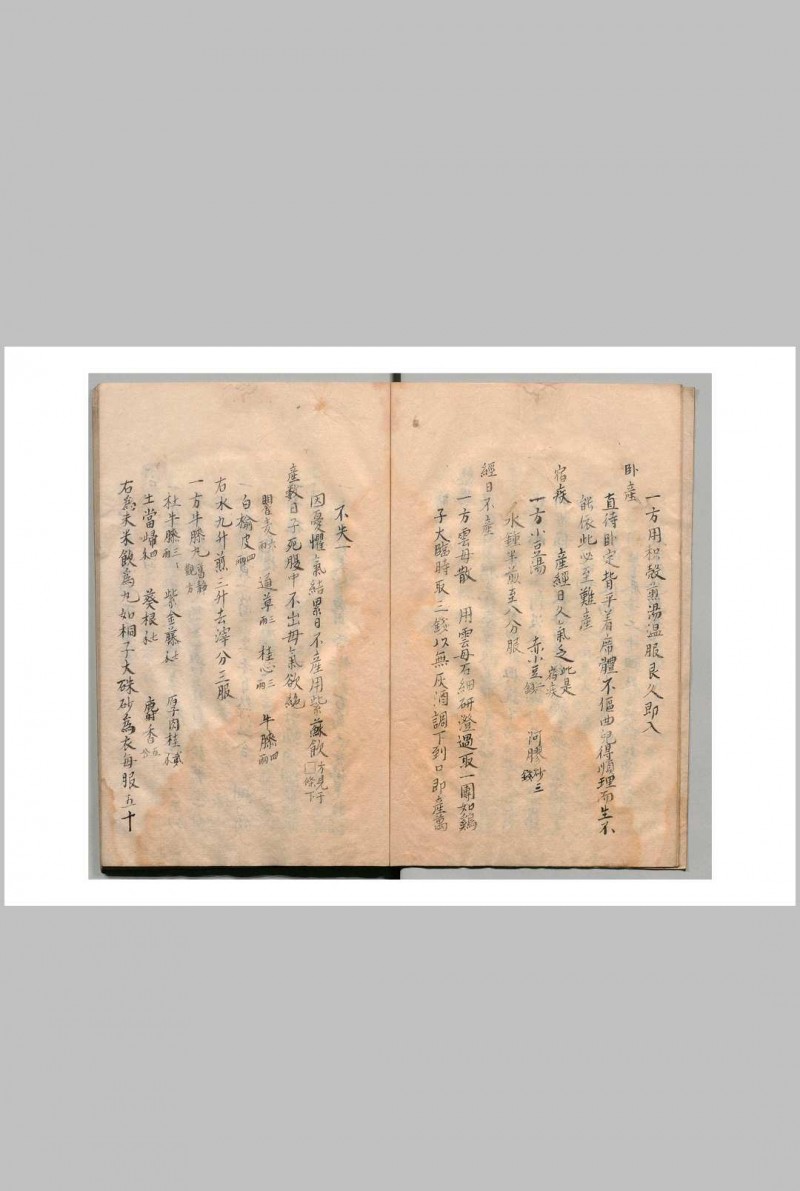 一方用枳殼煎湯溫服良久即入
卧產
直待卧定背平着席體不傴曲兒得順理而生不
能依此必至難產
宿疾 產經日久氣乏此是宿疾
一方小豆湯 赤小豆 阿膠炒三錢
水鍾半煎至八分服
經日不產
一方雲母散 用雲母石細研澄過取一團如鷄
子大臨時取三錢以無灰酒調下到口即產萬
不失一
因憂懼氣結累日不產用紫蘇飲方見子條下
產數日子死腹中不出母氣欲絕
瞿麥 通草三兩 桂心三兩 牛膝四兩
白榆皮四兩
右水九升煎三升去滓分三服
一方牛膝丸
杜牛膝三 紫金藤 厚肉桂
土當歸四 葵根 麝香五分
右為末米飲為丸如桐子大硃砂為衣每服五十